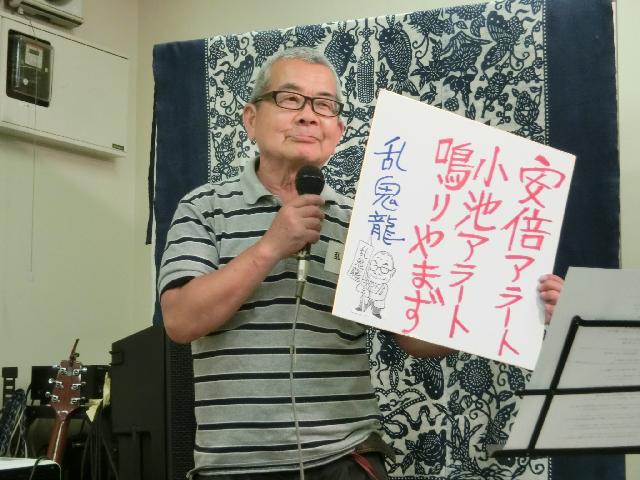 安倍アラート
小池アラート
鳴りやまず
乱鬼龍
乱鬼龍